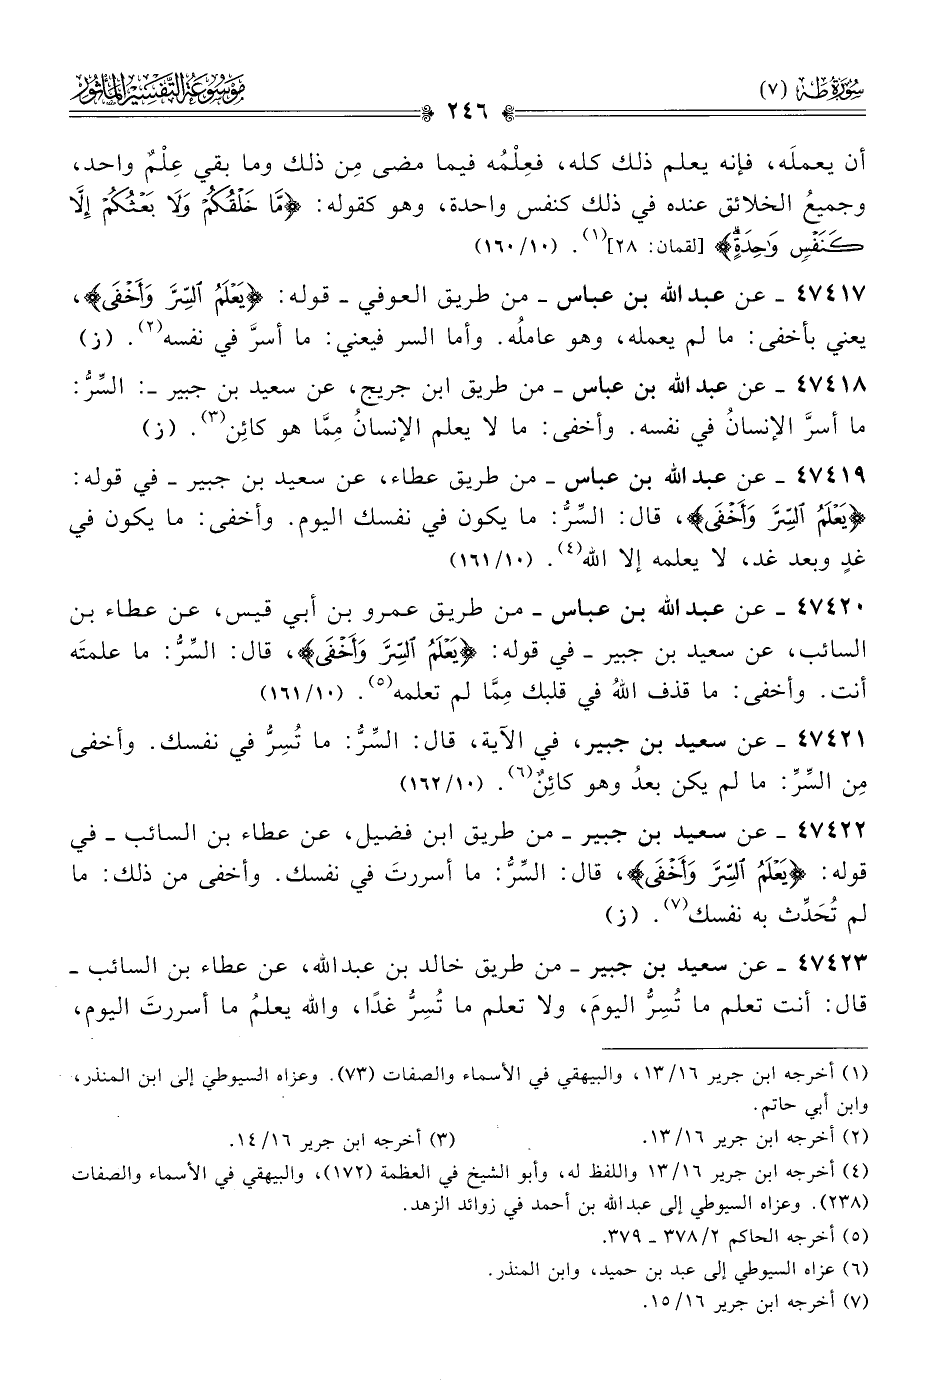 سُورَةُ طه (٧)
٢٤٦
مَوْسُوعَةُ التَّفْسِيرِ المَأْثُورِ
أن يعملَه، فإنه يعلم ذلك كله، فعِلْمُه فيما مضى مِن ذلك وما بقي عِلْمٌ واحد،
وجميعُ الخلائق عنده في ذلك كنفس واحدة، وهو كقوله: ﴿مَّا خَلْقُكُمْ وَلَا بَعْثُكُمْ إِلَّا
كَنَفْسٍ وَٰحِدَةٍ﴾ [لقمان: ٢٨](١). (١٠/ ١٦٠)
٤٧٤١٧ - عن عبد الله بن عباس - من طريق العوفي - قوله: ﴿يَعْلَمُ ٱلسِّرَّ وَأَخْفَى﴾،
يعني بأخفى: ما لم يعمله، وهو عاملُه. وأما السر فيعني: ما أسرَّ في نفسه(٢). (ز)
٤٧٤١٨ - عن عبد الله بن عباس - من طريق ابن جريج، عن سعيد بن جبير -: السِّرُّ:
ما أسرَّ الإنسانُ في نفسه. وأخفى: ما لا يعلم الإنسانُ مِمَّا هو كائِن(٣). (ز)
٤٧٤١٩ - عن عبد الله بن عباس - من طريق عطاء، عن سعيد بن جبير - في قوله:
﴿يَعْلَمُ ٱلسِّرَّ وَأَخْفَى﴾، قال: السِّرُّ: ما يكون في نفسك اليوم. وأخفى: ما يكون في
غدٍ وبعد غد، لا يعلمه إلا الله(٤). (١٠/ ١٦١)
٤٧٤٢٠ - عن عبد الله بن عباس - من طريق عمرو بن أبي قيس، عن عطاء بن
السائب، عن سعيد بن جبير - في قوله: ﴿يَعْلَمُ ٱلسِّرَّ وَأَخْفَى﴾، قال: السِّرُّ: ما علمتَه
أنت. وأخفى: ما قذف اللهُ في قلبك مِمَّا لم تعلمه(٥). (١٠/ ١٦١)
٤٧٤٢١ - عن سعيد بن جبير، في الآية، قال: السِّرُّ: ما تُسِرُّ في نفسك. وأخفى
مِن السِّرِّ: ما لم يكن بعدُ وهو كائِنٌ(٦). (١٠/ ١٦٢)
٤٧٤٢٢ - عن سعيد بن جبير - من طريق ابن فضيل، عن عطاء بن السائب - في
قوله: ﴿يَعْلَمُ ٱلسِّرَّ وَأَخْفَى﴾، قال: السِّرُّ: ما أسررتَ في نفسك. وأخفى من ذلك: ما
لم تُحَدِّث به نفسك(٧). (ز)
٤٧٤٢٣ - عن سعيد بن جبير - من طريق خالد بن عبد الله، عن عطاء بن السائب -
قال: أنت تعلم ما تُسِرُّ اليومَ، ولا تعلم ما تُسِرُّ غدًا، والله يعلمُ ما أسررتَ اليوم،
(١) أخرجه ابن جرير ١٦/ ١٣، والبيهقي في الأسماء والصفات (٧٣). وعزاه السيوطي إلى ابن المنذر،
وابن أبي حاتم.
(٢) أخرجه ابن جرير ١٦/ ١٣. (٣) أخرجه ابن جرير ١٦/ ١٤.
(٤) أخرجه ابن جرير ١٦/ ١٣ واللفظ له، وأبو الشيخ في العظمة (١٧٢)، والبيهقي في الأسماء والصفات
(٢٣٨). وعزاه السيوطي إلى عبد الله بن أحمد في زوائد الزهد.
(٥) أخرجه الحاكم ٢/ ٣٧٨ - ٣٧٩.
(٦) عزاه السيوطي إلى عبد بن حميد، وابن المنذر.
(٧) أخرجه ابن جرير ١٦/ ١٥.